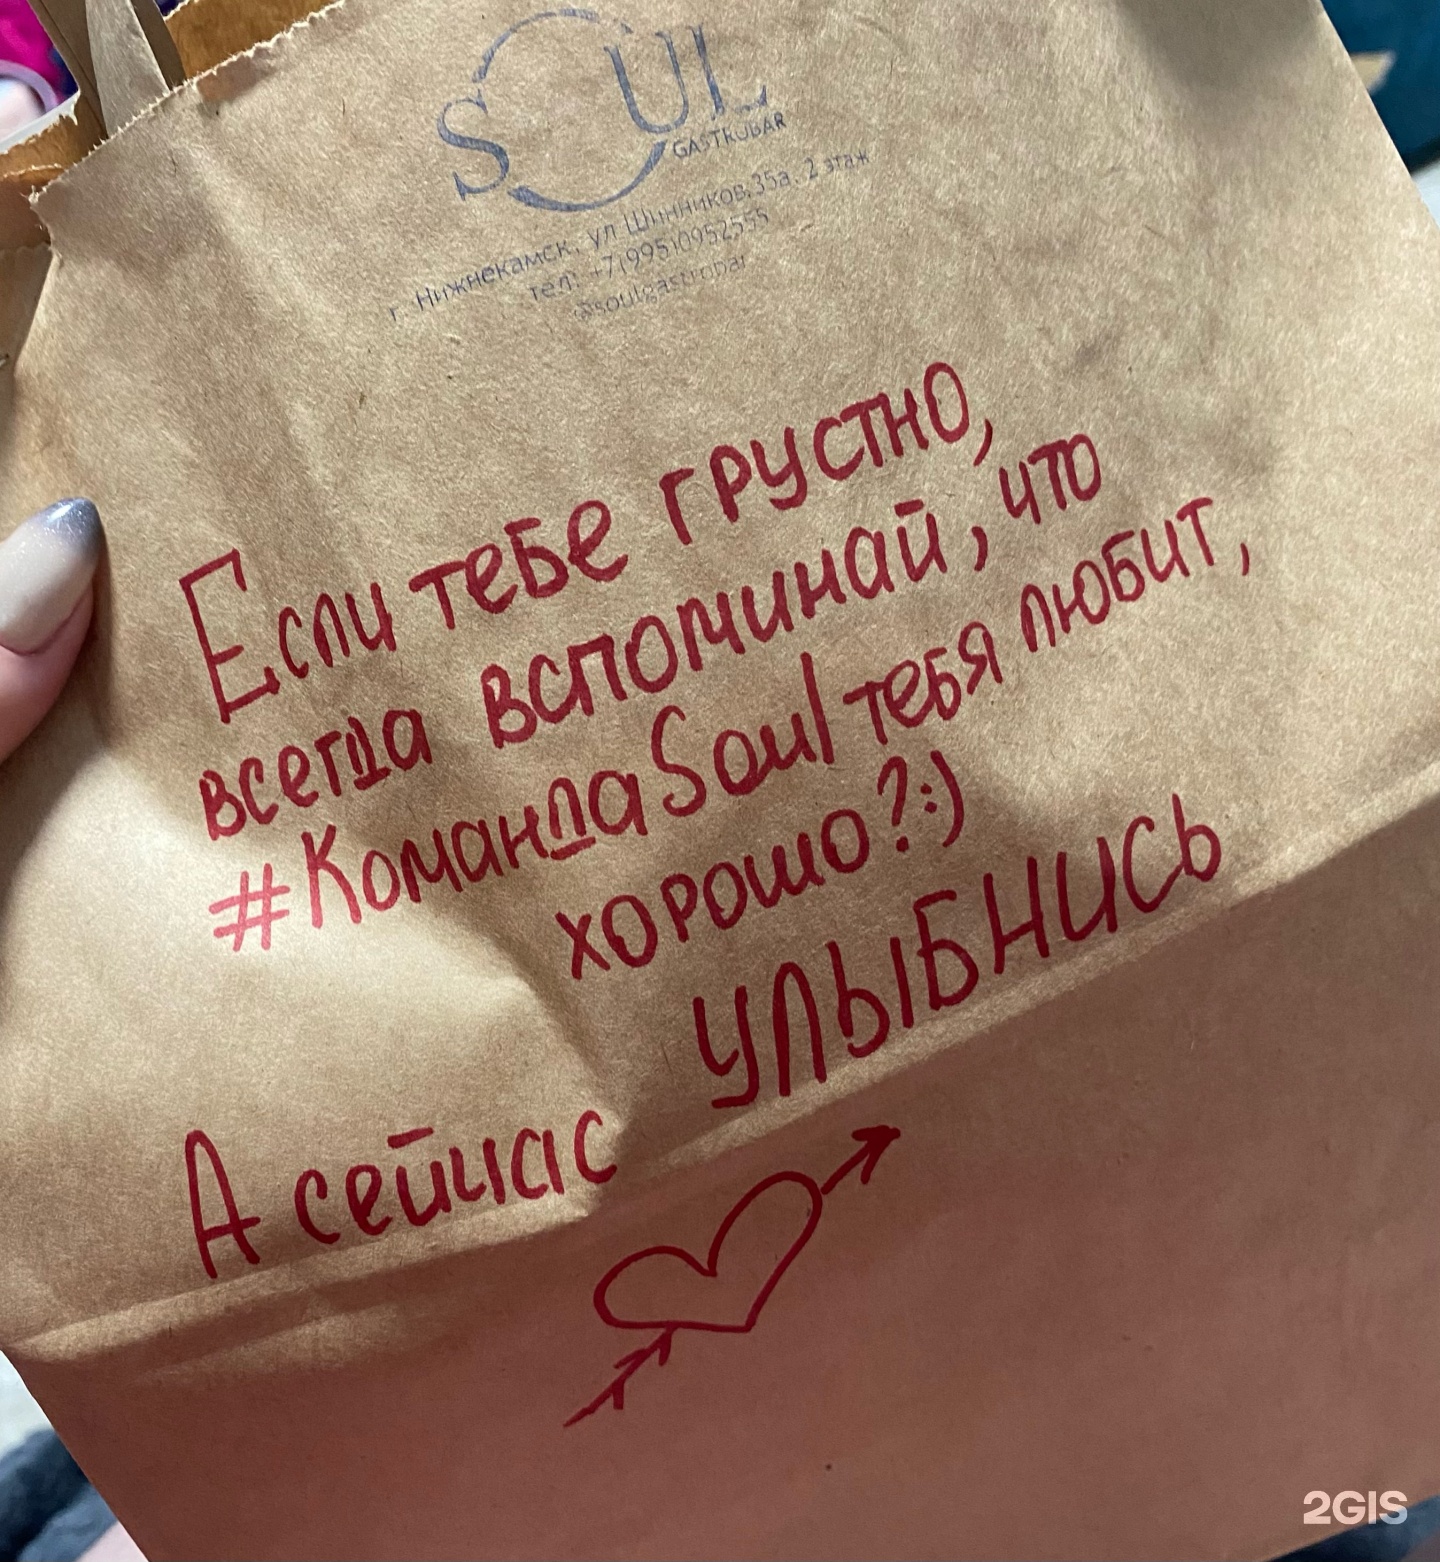 SOUL
GASTROBAR
г. Нижнекамск, ул Шинников,35а, 2 этаж
тел: +7(995)0952555
@soulgastrobar
Если тебе грустно,
всегда вспоминай, что
#КомандаSoul тебя любит,
хорошо?:)
А сейчас УЛЫБНИСЬ
2GIS